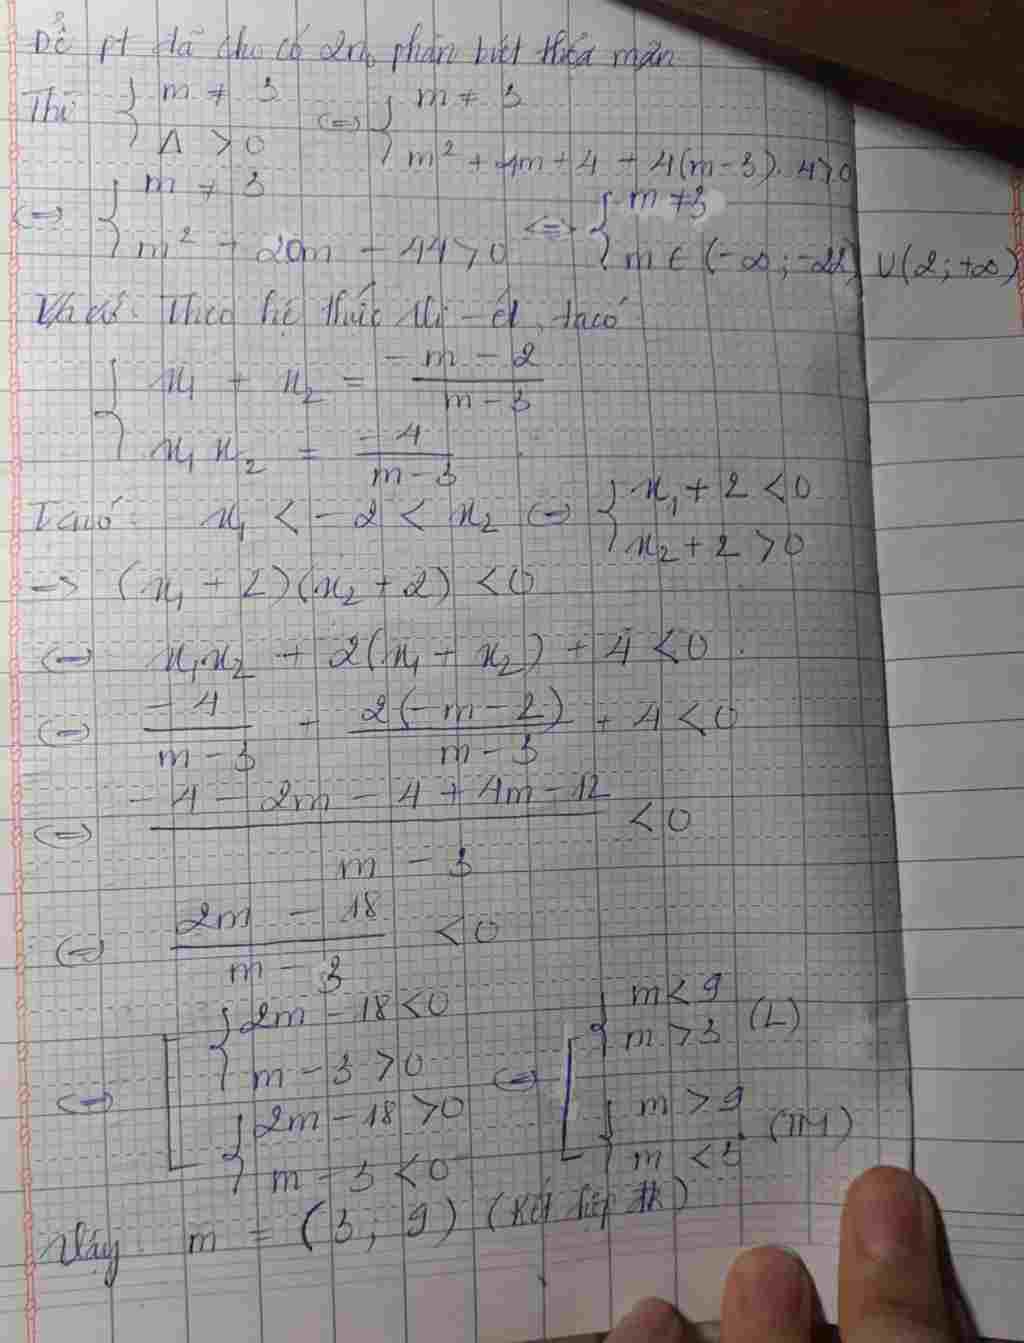 Để pt đã cho có 2no phân biệt thỏa mãn
Thì { m ≠ 3 ; Δ > 0 (=) { m ≠ 3 ; m² + 4m + 4 + 4(m-3).4>0
(=) { m ≠ 3 ; m² + 20m - 44 > 0 <=> { m ≠ 3 ; m ∈ (-∞; -22) ∪ (2; +∞)
Theo hệ thức Vi-ét, ta có
{ x₁ + x₂ = (-m - 2)/(m - 3)
x₁ x₂ = (-4)/(m - 3)
Ta có: x₁ < -2 < x₂ (=) { x₁ + 2 < 0 ; x₂ + 2 > 0
=> (x₁ + 2)(x₂ + 2) < 0
(=) x₁.x₂ + 2(x₁ + x₂) + 4 < 0
(=) (-4)/(m - 3) + (2(-m - 2))/(m - 3) + 4 < 0
(=) (-4 - 2m - 4 + 4m - 12)/(m - 3) < 0
(=) (2m - 18)/(m - 3) < 0
(=) [ { 2m - 18 < 0 ; m - 3 > 0 (=) [ { m < 9 ; m > 3 (L)
{ 2m - 18 > 0 ; m - 3 < 0 { m > 9 ; m < 3 (TM)
Vậy m = (3; 9) (Kết hợp đk)